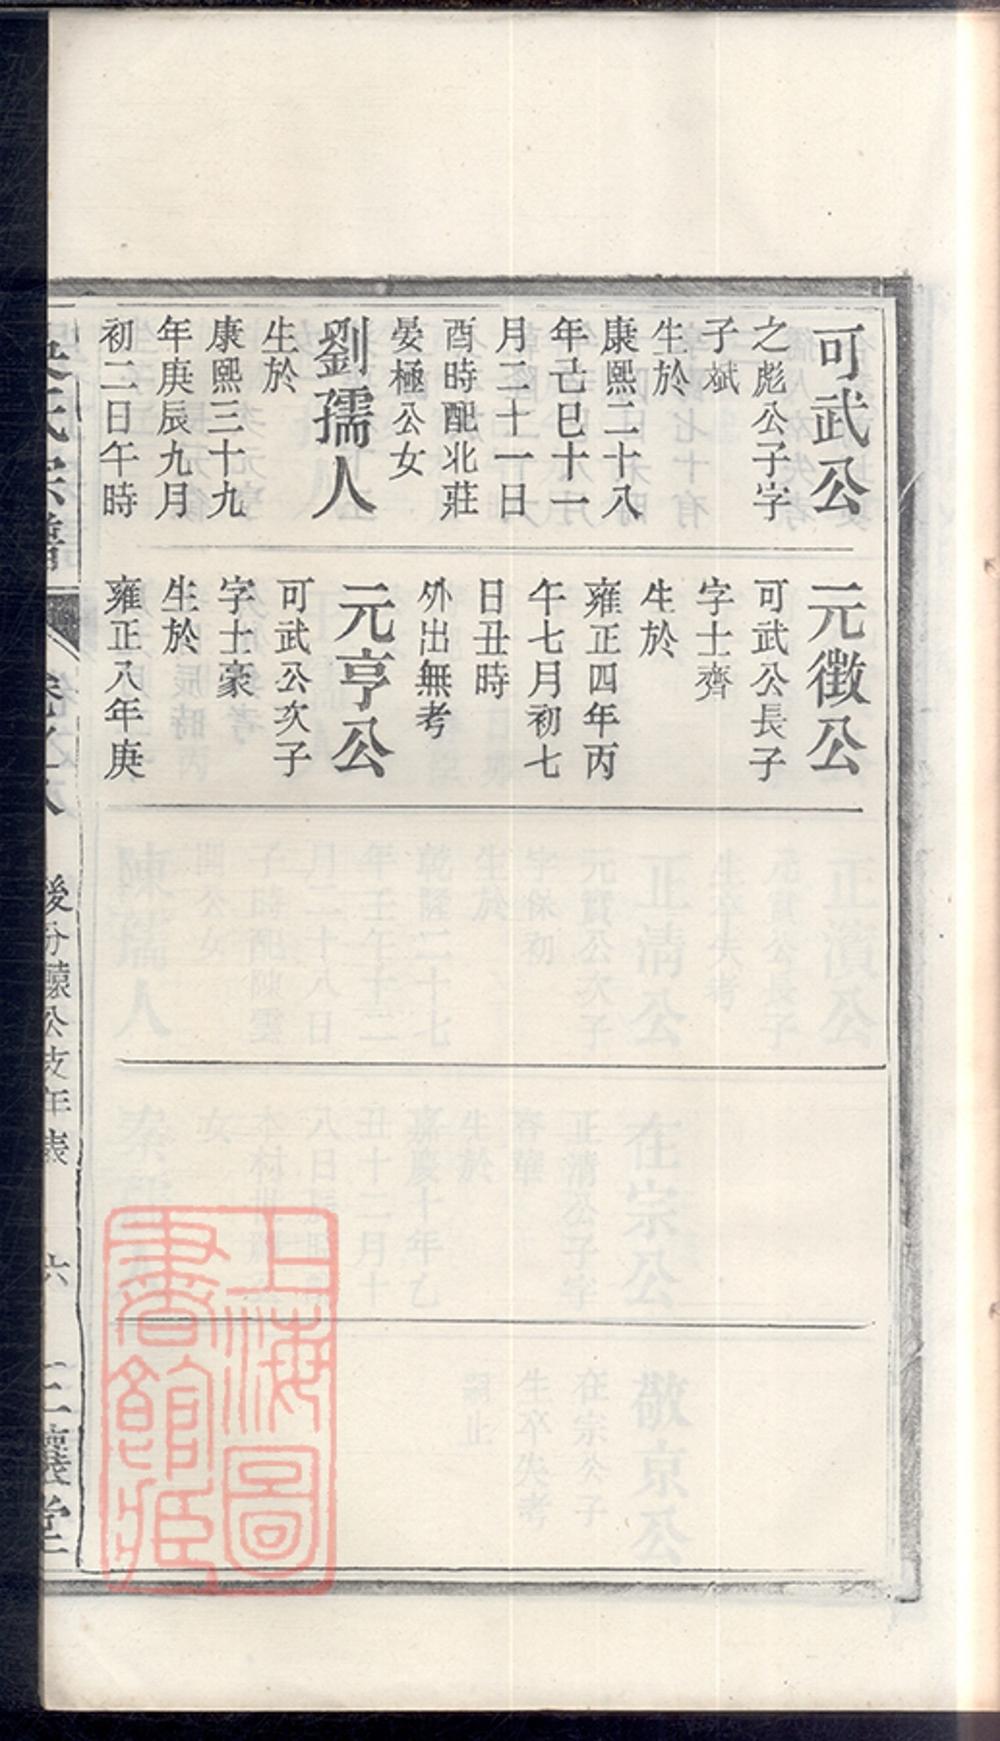 可武公
之彪公子字
子斌
生於
康熙二十八
年己巳十一
月二十一日
酉時配北莊
晏極公女
劉孺人
生於
康熙三十九
年庚辰九月
初二日午時
元徵公
可武公長子
字士齊
生於
雍正四年丙
午七月初七
日丑時
外出無考
元亨公
可武公次子
字士豪
生於
雍正八年庚
後分轅公支年表
六
上海圖
書館藏